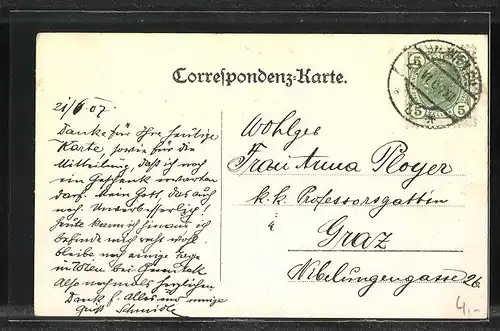 Correspondenz-Karte.
21/6.07.
Danke für Ihre heutige
Karte, sowie für die
Mitteilung, daß ich noch
ein Geschenk erwarten
darf. Mein Gott, das auch
noch. Unverbesserlich!
Heute kann ich hinaus ich
befinde mich recht wohl
bleibe noch einige Tage
in Wien bei
Also nochmals herzlichen
Dank f. Alles und innige
Schmidt
Wohlgeb
Frau Anna Ployer
k. k. Professorsgattin
Graz
Nibelungengasse 26
5 5
5 5
4,-